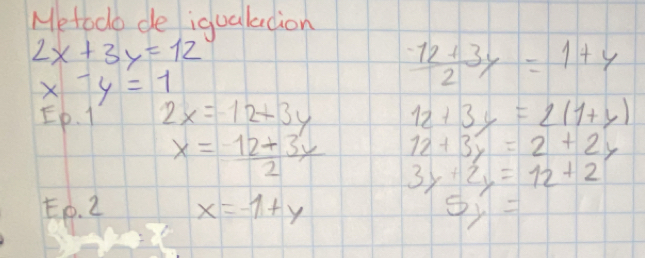 Metodo de igualacion
2x + 3y = 12
x - y = 1
Ep.1 2x = -12 + 3y
x = -12 + 3y / 2
Ep.2 x = -1 + y
-12 + 3y / 2 = 1 + y
12 + 3y = 2(1 + y)
12 + 3y = 2 + 2y
3y + 2y = 12 + 2
5y =